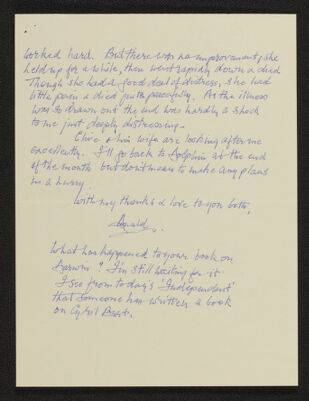 worked hard. But there was no improvement; she
held up for a while, then went rapidly down & died
Though she had a good deal of distress, she had
little pain & died quite peacefully. As the illness
was so drawn out the end was hardly a shock
to me just deeply distressing.
Clive & his wife are looking after me
excellently. I'll go back to Dolphin at the end
of the month but don't mean to make any plans
in a hurry.
With my thanks & love to you both,
Donald.
What has happened to your book on
Darwin? I'm still waiting for it
I see from today's 'Independent'
that someone has written a book
on Cyril Burt.